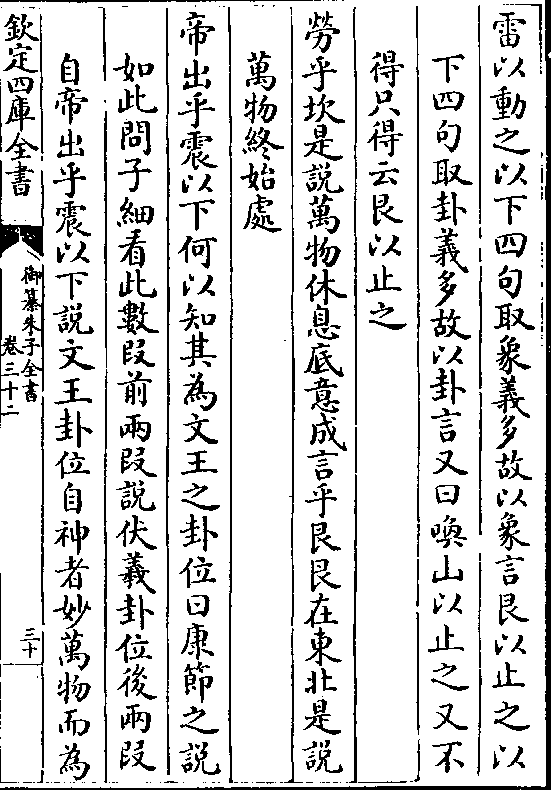 雷以動之以下四句取象義多故以象言艮以止之以
下四句取卦義多故以卦言又曰喚山以止之又不
得只得云艮以止之
勞乎坎是說萬物休息底意成言乎艮艮在東北是說
萬物終始處
帝出乎震以下何以知其為文王之卦位曰康節之說
如此問子細看此數段前兩段說伏羲卦位後兩段
自帝出乎震以下說文王卦位自神者妙萬物而為
欽定四庫全書
御纂朱子全書
卷三十二
三十